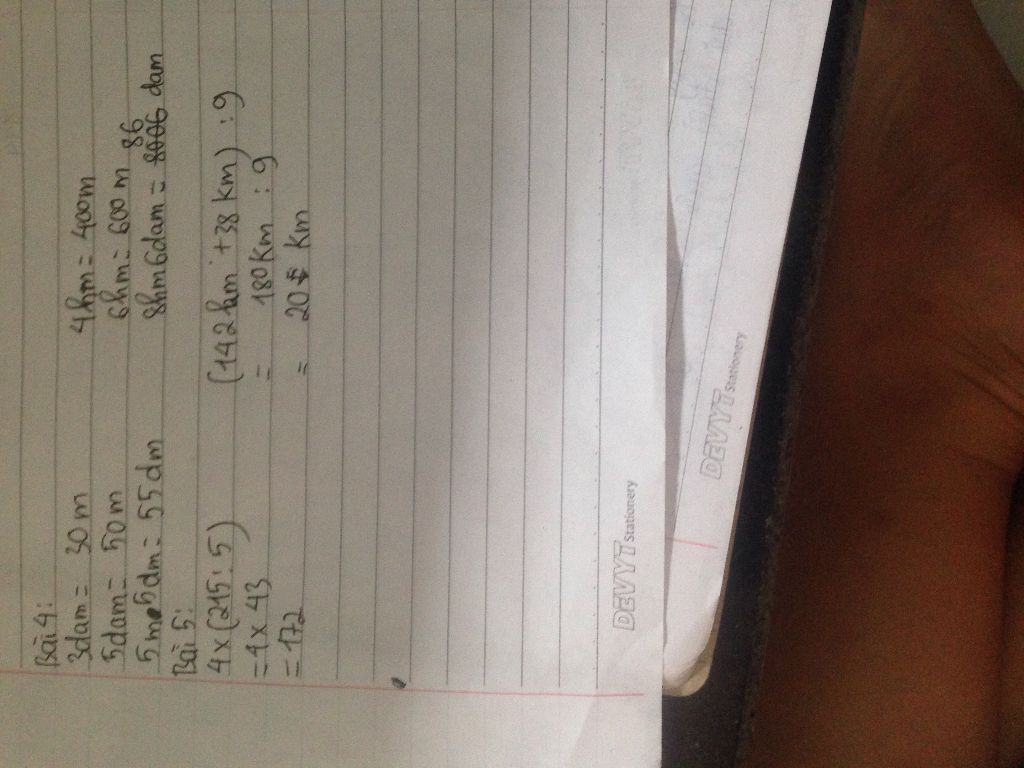 Bài 4:
3dam = 30 m 4hm = 400m
5dam = 50m 6hm = 600 m
5m 5dm = 55dm 8hm6dam = 8006 86 dam
Bài 5:
4 x (215 : 5) (142hm + 38 km) : 9
= 4 x 43 = 180 km : 9
= 172 = 20 km
DEVYT Stationery
DEVYT Stationery